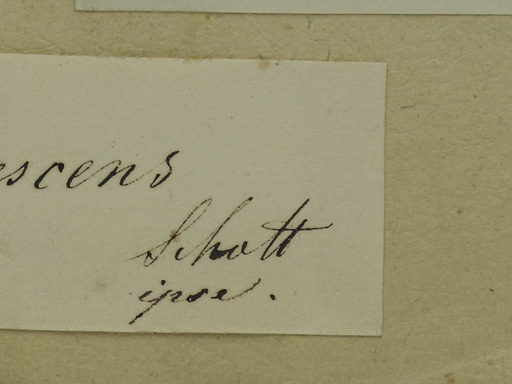 escens
Schott
ipse.